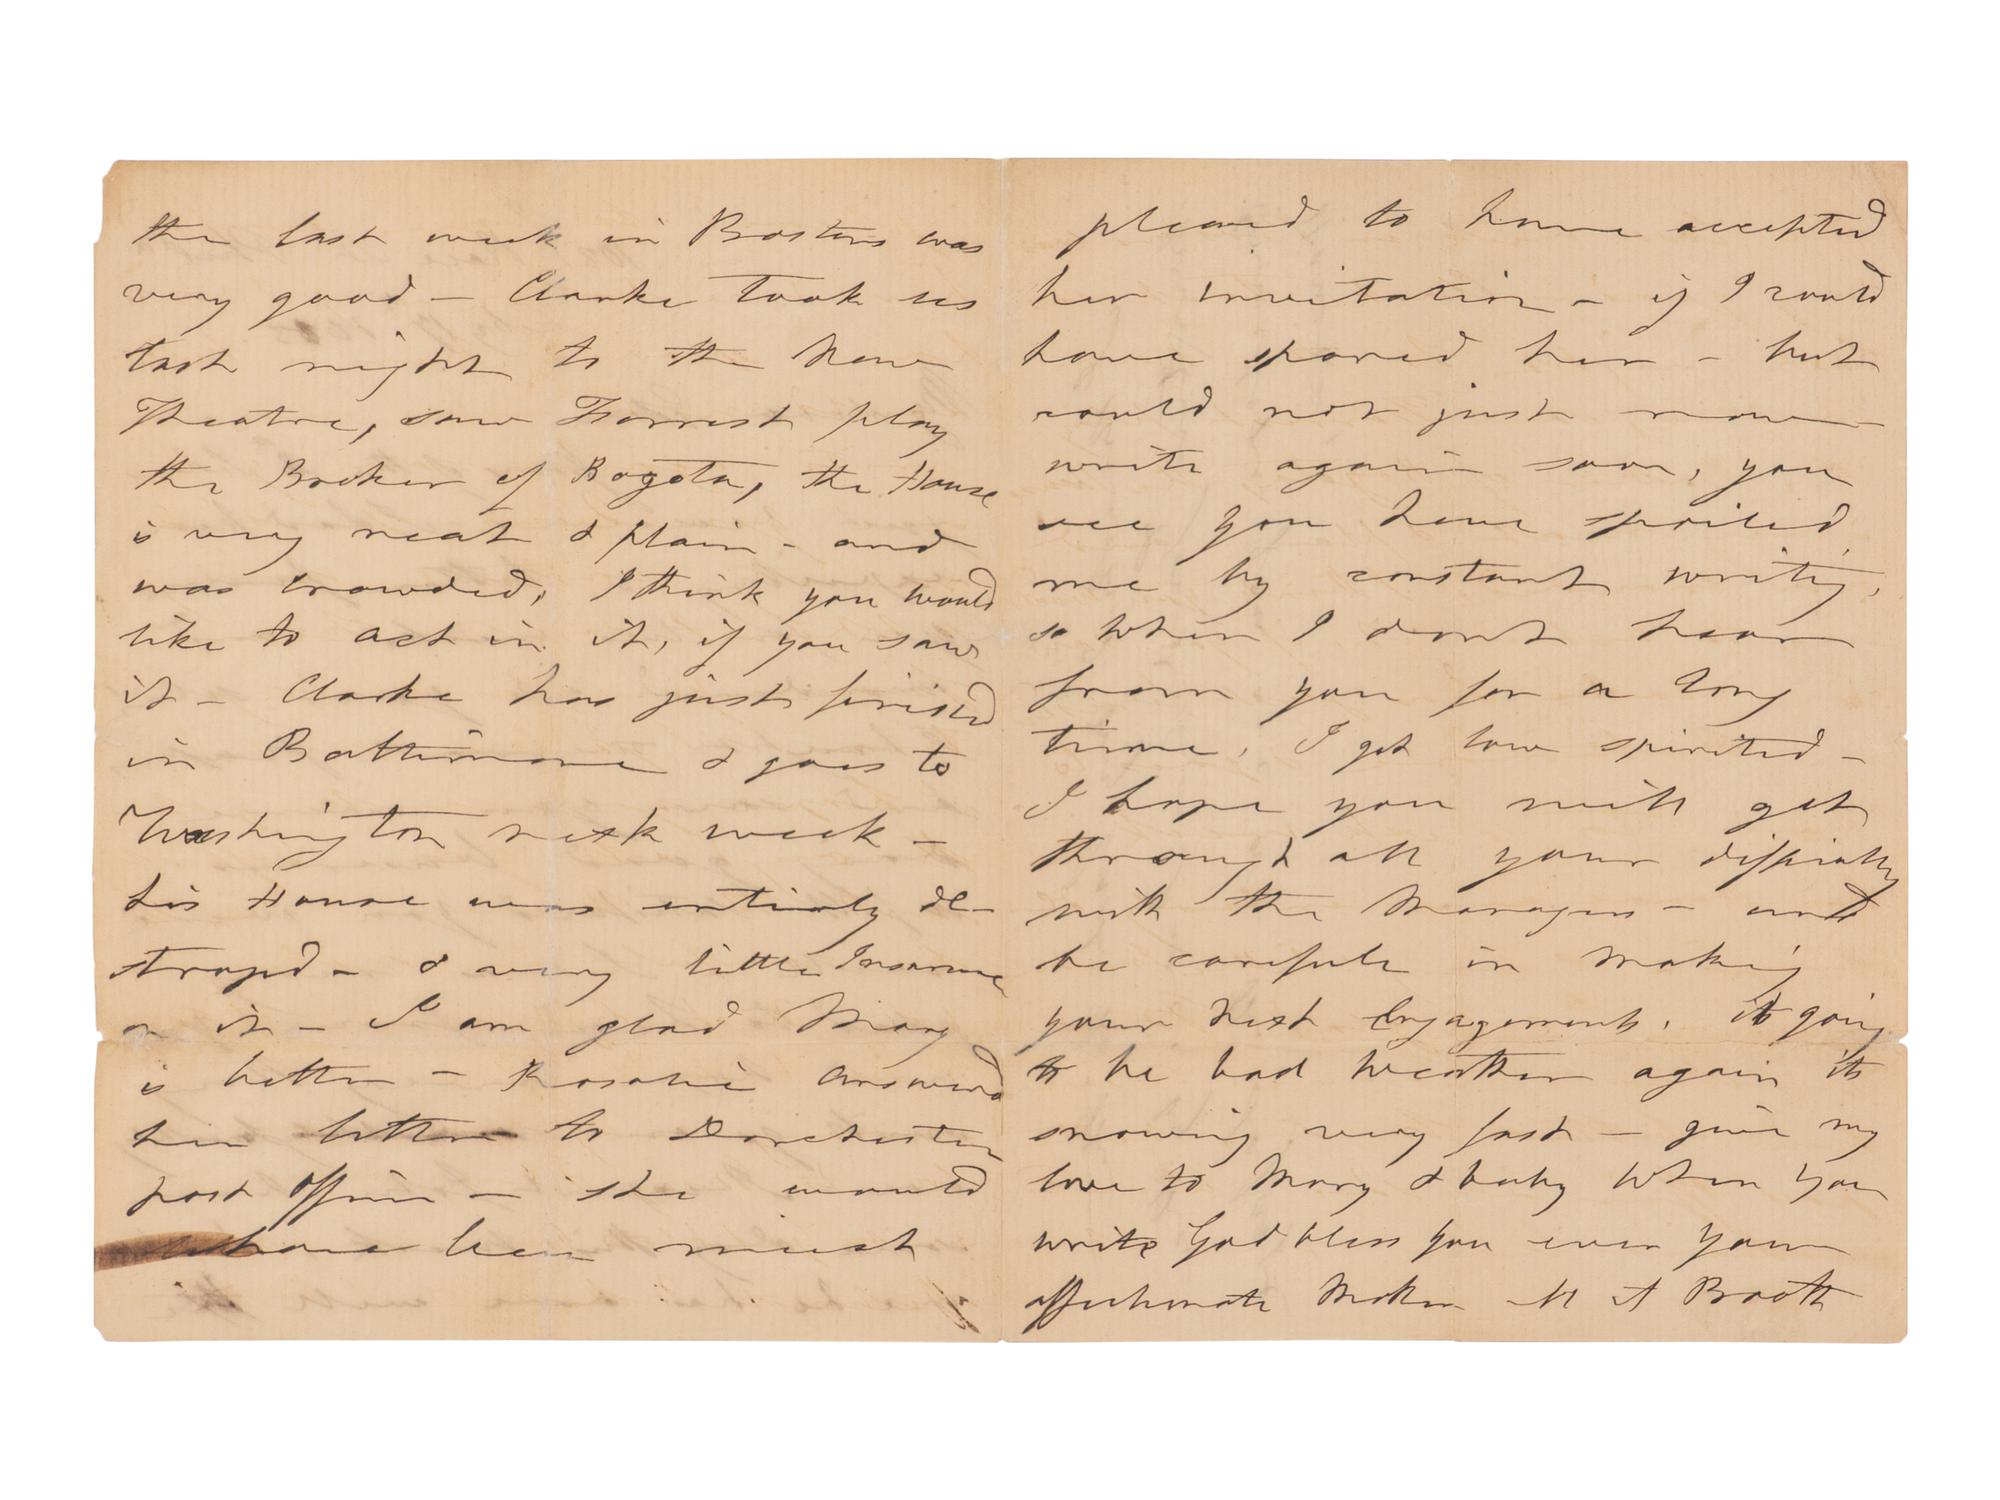 the last week in Boston was
very good - Clarke took us
last night to the New
Theatre, saw Forrest play
the Broker of Bogota, the House
is very neat & plain - and
was crowded, I think you would
like to act in it, if you saw
it - Clarke has just finised
in Baltimore & goes to
Washington next week -
his House was entirely de-
stroyd - & very little Insurance
on it - I am glad Mary
is better - Rosalie answerd
her letter to Dorchester
post Office - she would
have been must
pleased to have accepted
her invitation - if I could
have spared her - but
could not just now
write again soon, you
see you have spoiled
me by constant writing,
so when I dont hear
from you for a long
time, I get low spirited -
I hope you will get
through all your difficulty
with the Managers - and
be carefull in Making
your next Engagements, its going
to be bad weather again its
snowing very fast - give my
love to Mary & baby when you
write God bless you ever your
affectionate Mother M A Booth